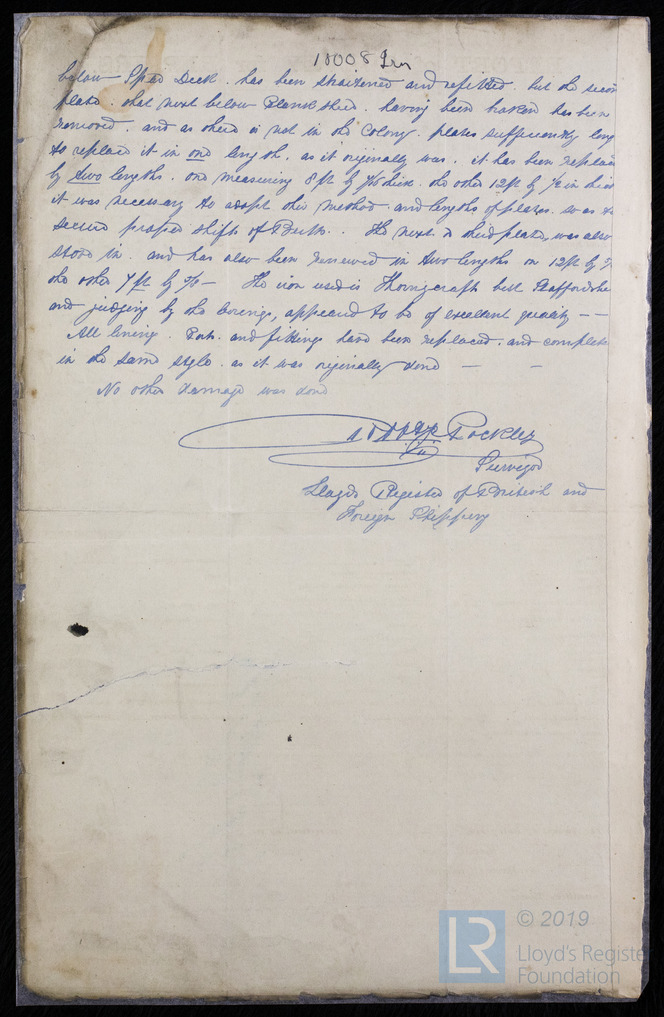 18008 Irn
below Spar Deck. has been straitened and refitted. but the secon
plate. that next below Plank Sheer. having been broken has been
removed. and as there is not in the Colony. plates sufficiently long
to replace it in one length. as it originally was. it has been replace
by two lengths. one measuring 8ft by thick. the other 12ft by 1/2 in thick
it was necessary to adopt this method and lengths of plates. so as to
secure proper shift of Butts. The next or third plate, was also
stove in. and has also been renewed in two lengths on 12ft by
the other 7ft by — The iron used is best Staffordshire
and judging by the borings, appeared to be of excellent quality — —
All lining. Ports. and fittings have been replaced. and complete
in the same style. as it was originally done — —
No other damage was done
Rockley
Surveyor
Lloyds Register of British and
Foreign Shipping
LR © 2019
Lloyd's Registe
Foundation